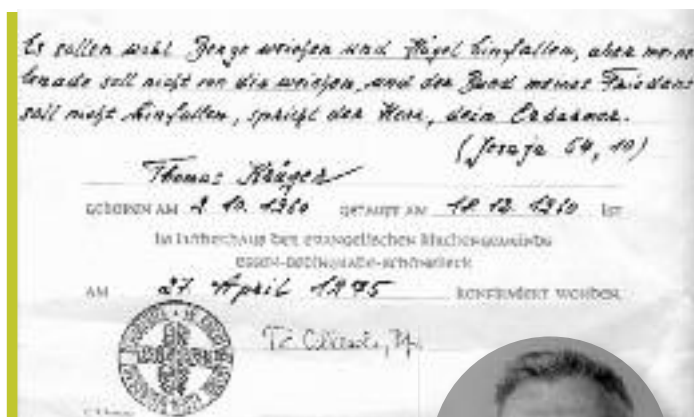 Es sollen wohl Berge weichen und Hügel hinfallen, aber meine
Gnade soll nicht von dir weichen, und der Bund meines Friedens
soll nicht hinfallen, spricht der Herr, dein Erbarmer.
(Jesaja 54, 10)
Thomas Krüger
GEBOREN AM 2. 10. 1960 GETAUFT AM 18. 12. 1960 IST
IM LUTHERHAUS DER EVANGELISCHEN KIRCHENGEMEINDE
ESSEN-BEDINGRADE-SCHÖNEBECK
AM 27. April 1975 KONFIRMIERT WORDEN.